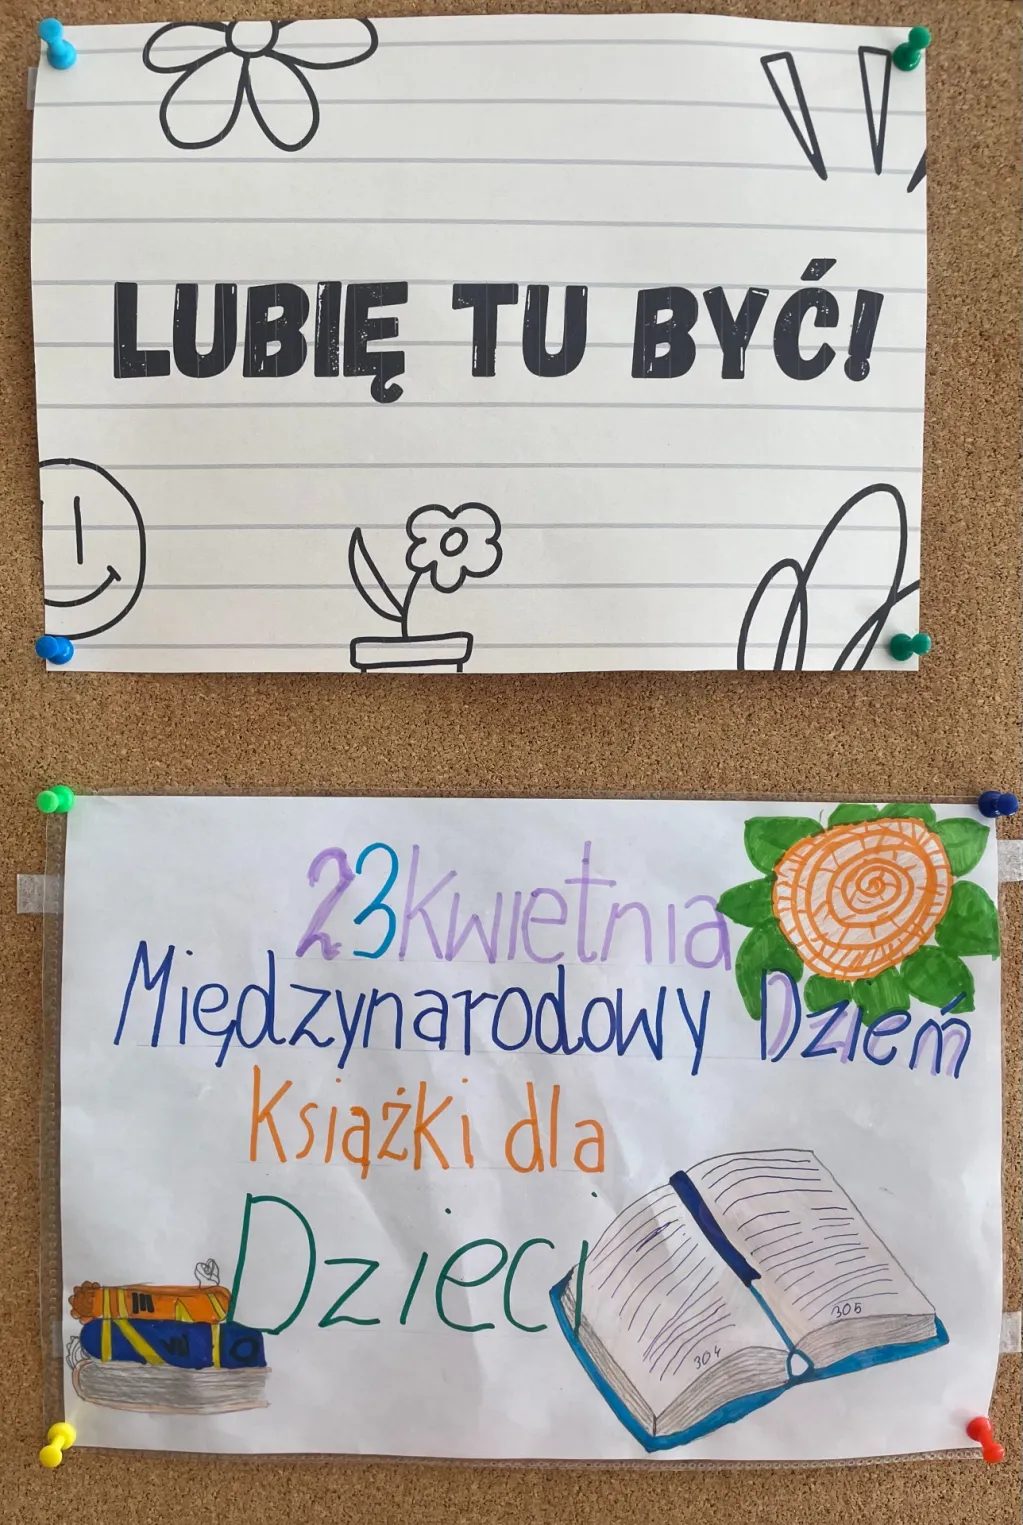 LUBIĘ TU BYĆ!
23 kwietnia
Międzynarodowy Dzień
Książki dla
Dzieci
304
305